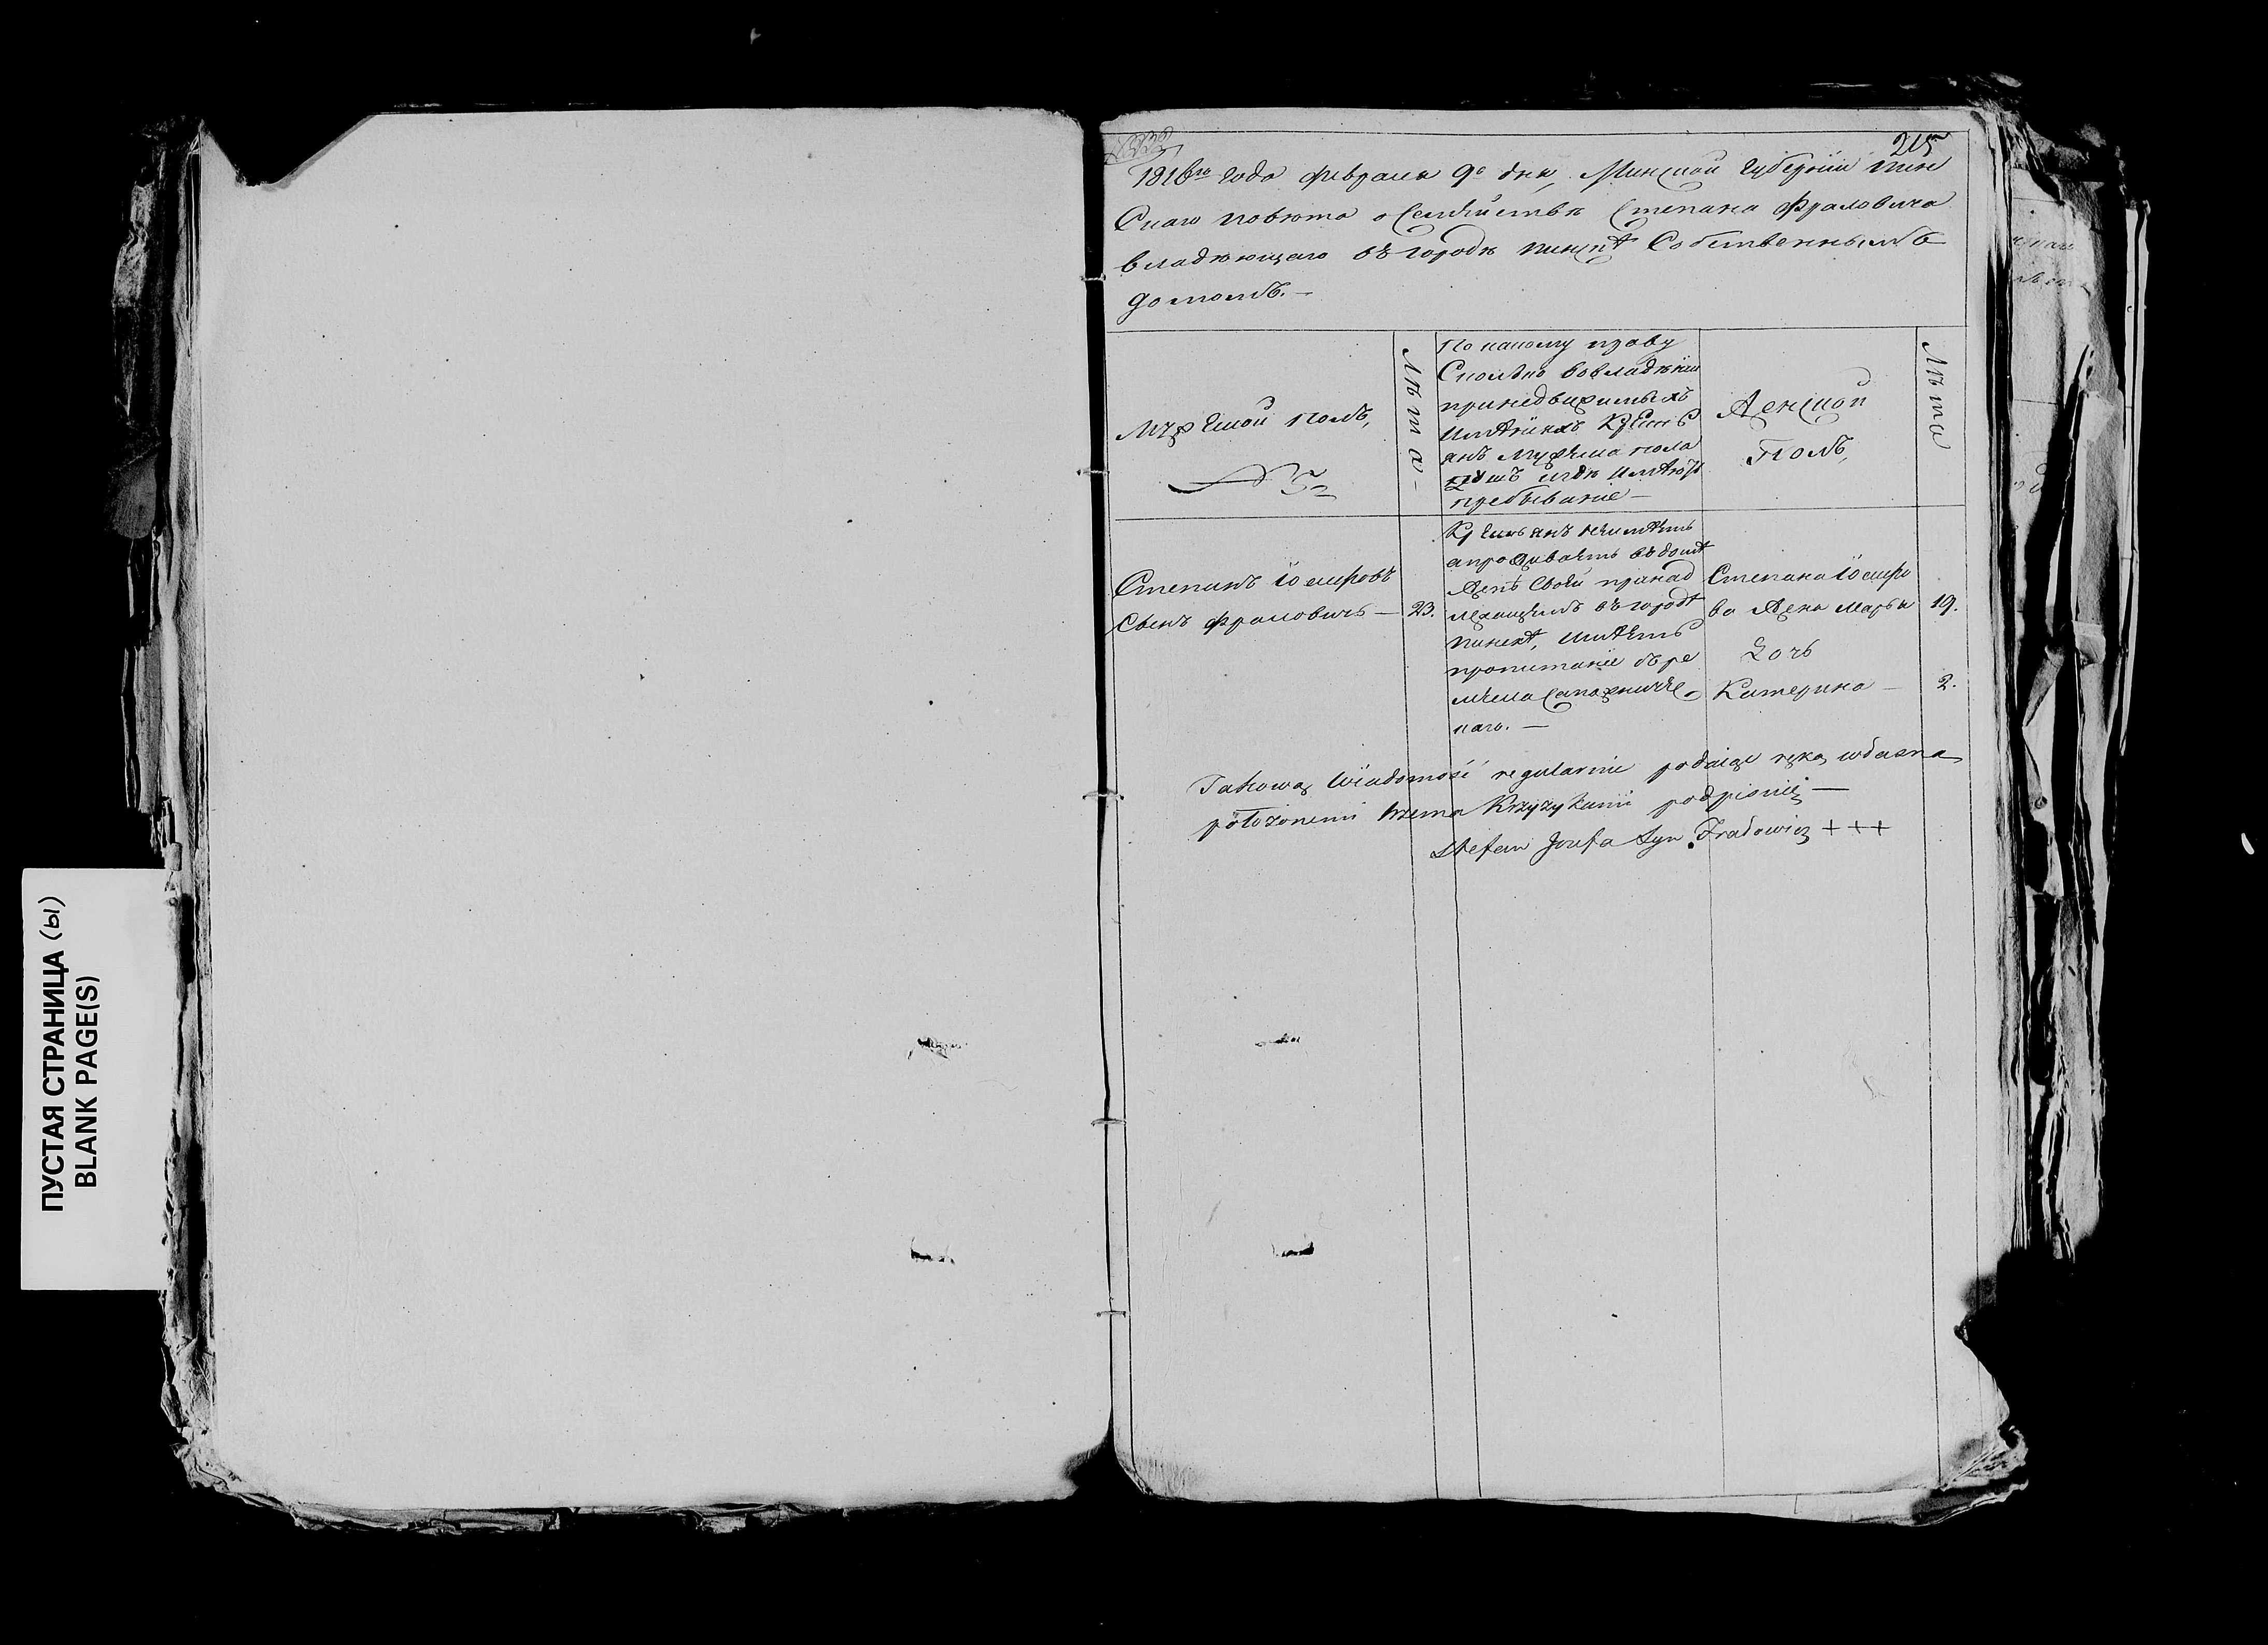 ПУСТАЯ СТРАНИЦА (Ы)
BLANK PAGE(S)
215
1816го года февраля 9о дня, Минской губернїи пин
Скаго повѣта о Семѣйствѣ Степана Фраловича
владѣющаго въ городѣ пинскѣ Собственнымъ
домомъ. —
Мужеской полъ,
Лѣта
По какому праву
Сколько во владѣнїи
при недвижимыхъ
имѣнїяхъ Крестъ
янъ мужеска пола
душъ и гдѣ имѣютъ
пребыванїе —
Женской
Полъ,
Лѣта
Степанъ Їосифовъ
Сынъ Фраловичъ — 23.
Крестьянъ неимѣетъ
а проживаетъ въ домѣ
женѣ Своей принад
лежащемъ въ городѣ
пинскѣ, имѣетъ
пропитанїе съ ре
месла Сапожниче
каго. —
Степана Їосифо
ва жена Марья 19.
Дочь
Катерина — 2.
Takową wiadomość regularnie podaię ręką własną
położonemi trzema Krzyżykami podpisuię —
Stefan Jozefa Syn Frałowicz + + +